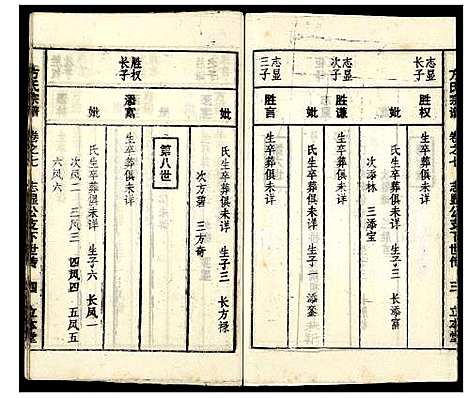 方氏宗谱 卷之七 志显公支下世传 三 立本堂
志显长子
胜权
生卒葬俱未详
妣
氏生卒葬俱未详 生子三 长添富
次添林 三添宝
志显次子
胜谦
生卒葬俱未详
妣
氏生卒葬俱未详 生子一 添銮
志显三子
胜言
生卒葬俱未详
妣
氏生卒葬俱未详 生子三 长方禄
次方碧 三方奇
第八世
胜权长子
添富
生卒葬俱未详
妣
氏生卒葬俱未详 生子六 长凤一
次凤二 三凤三 四凤四 五凤五
六凤六
方氏宗谱 卷之七 志显公支下世传 四 立本堂